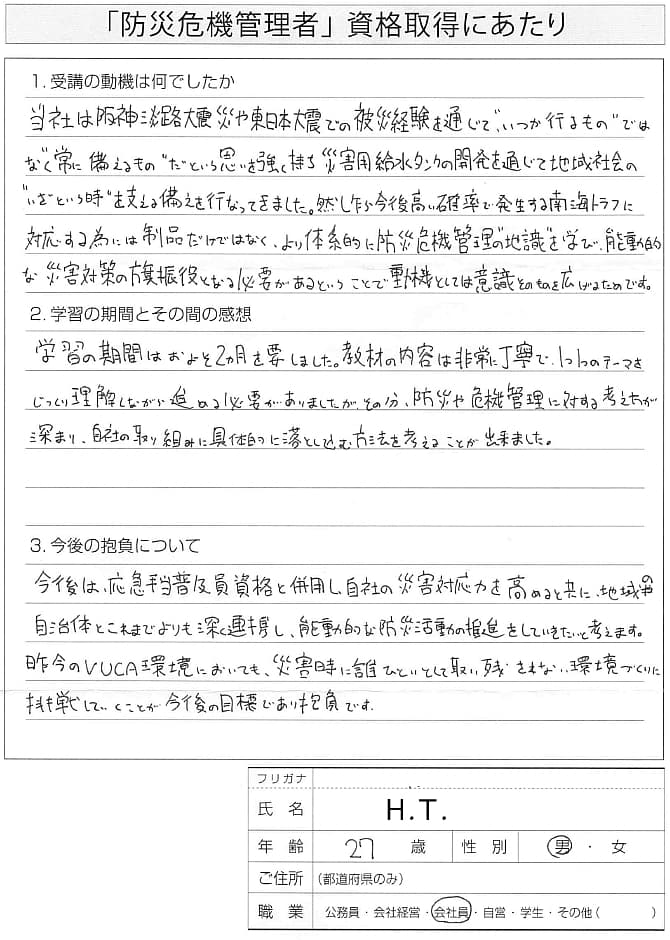 「防災危機管理者」資格取得にあたり
1. 受講の動機は何でしたか
当社は阪神淡路大震災や東日本大震での被災経験を通じて"いつか行るもの"では
なく"常に備えるもの"だという思いを強く持ち災害用給水タンクの開発を通じて地域社会の
"いざという時"を支える備えを行なってきました。然し乍ら今後高い確率で発生する南海トラフに
対応する為には制品だけではなく、より体系的に防災危機管理の"地識"を学び、能動的
な災害対策の旗振役となる必要があるということで動機としては意識そのものを広げるためです。
2. 学習の期間とその間の感想
学習の期間はおよそ2ヵ月を要しました。教材の内容は非常に丁寧で、1つ1つのテーマを
じっくり理解しながら進める必要がありましたが、その分、防災や危機管理に対する考え方が
深まり、自社の取り組みに具体的に落とし込む方法を考えることが出来ました。
3. 今後の抱負について
今後は、応急手当普及員資格と併用し自社の災害対応力を高めると共に、地域の
自治体とこれまでよりも深く連携し、能動的な防災活動の推進をしていきたいと考えます。
昨今のVUCA環境においても、災害時に誰ひとりとして取り残されない環境づくりに
挑戦していくことが今後の目標であり抱負です。
フリガナ
氏 名 H.T.
年 齢 27 歳 性 別 男 ・ 女
ご住所 (都道府県のみ)
職 業 公務員・会社経営・会社員・自営・学生・その他( )